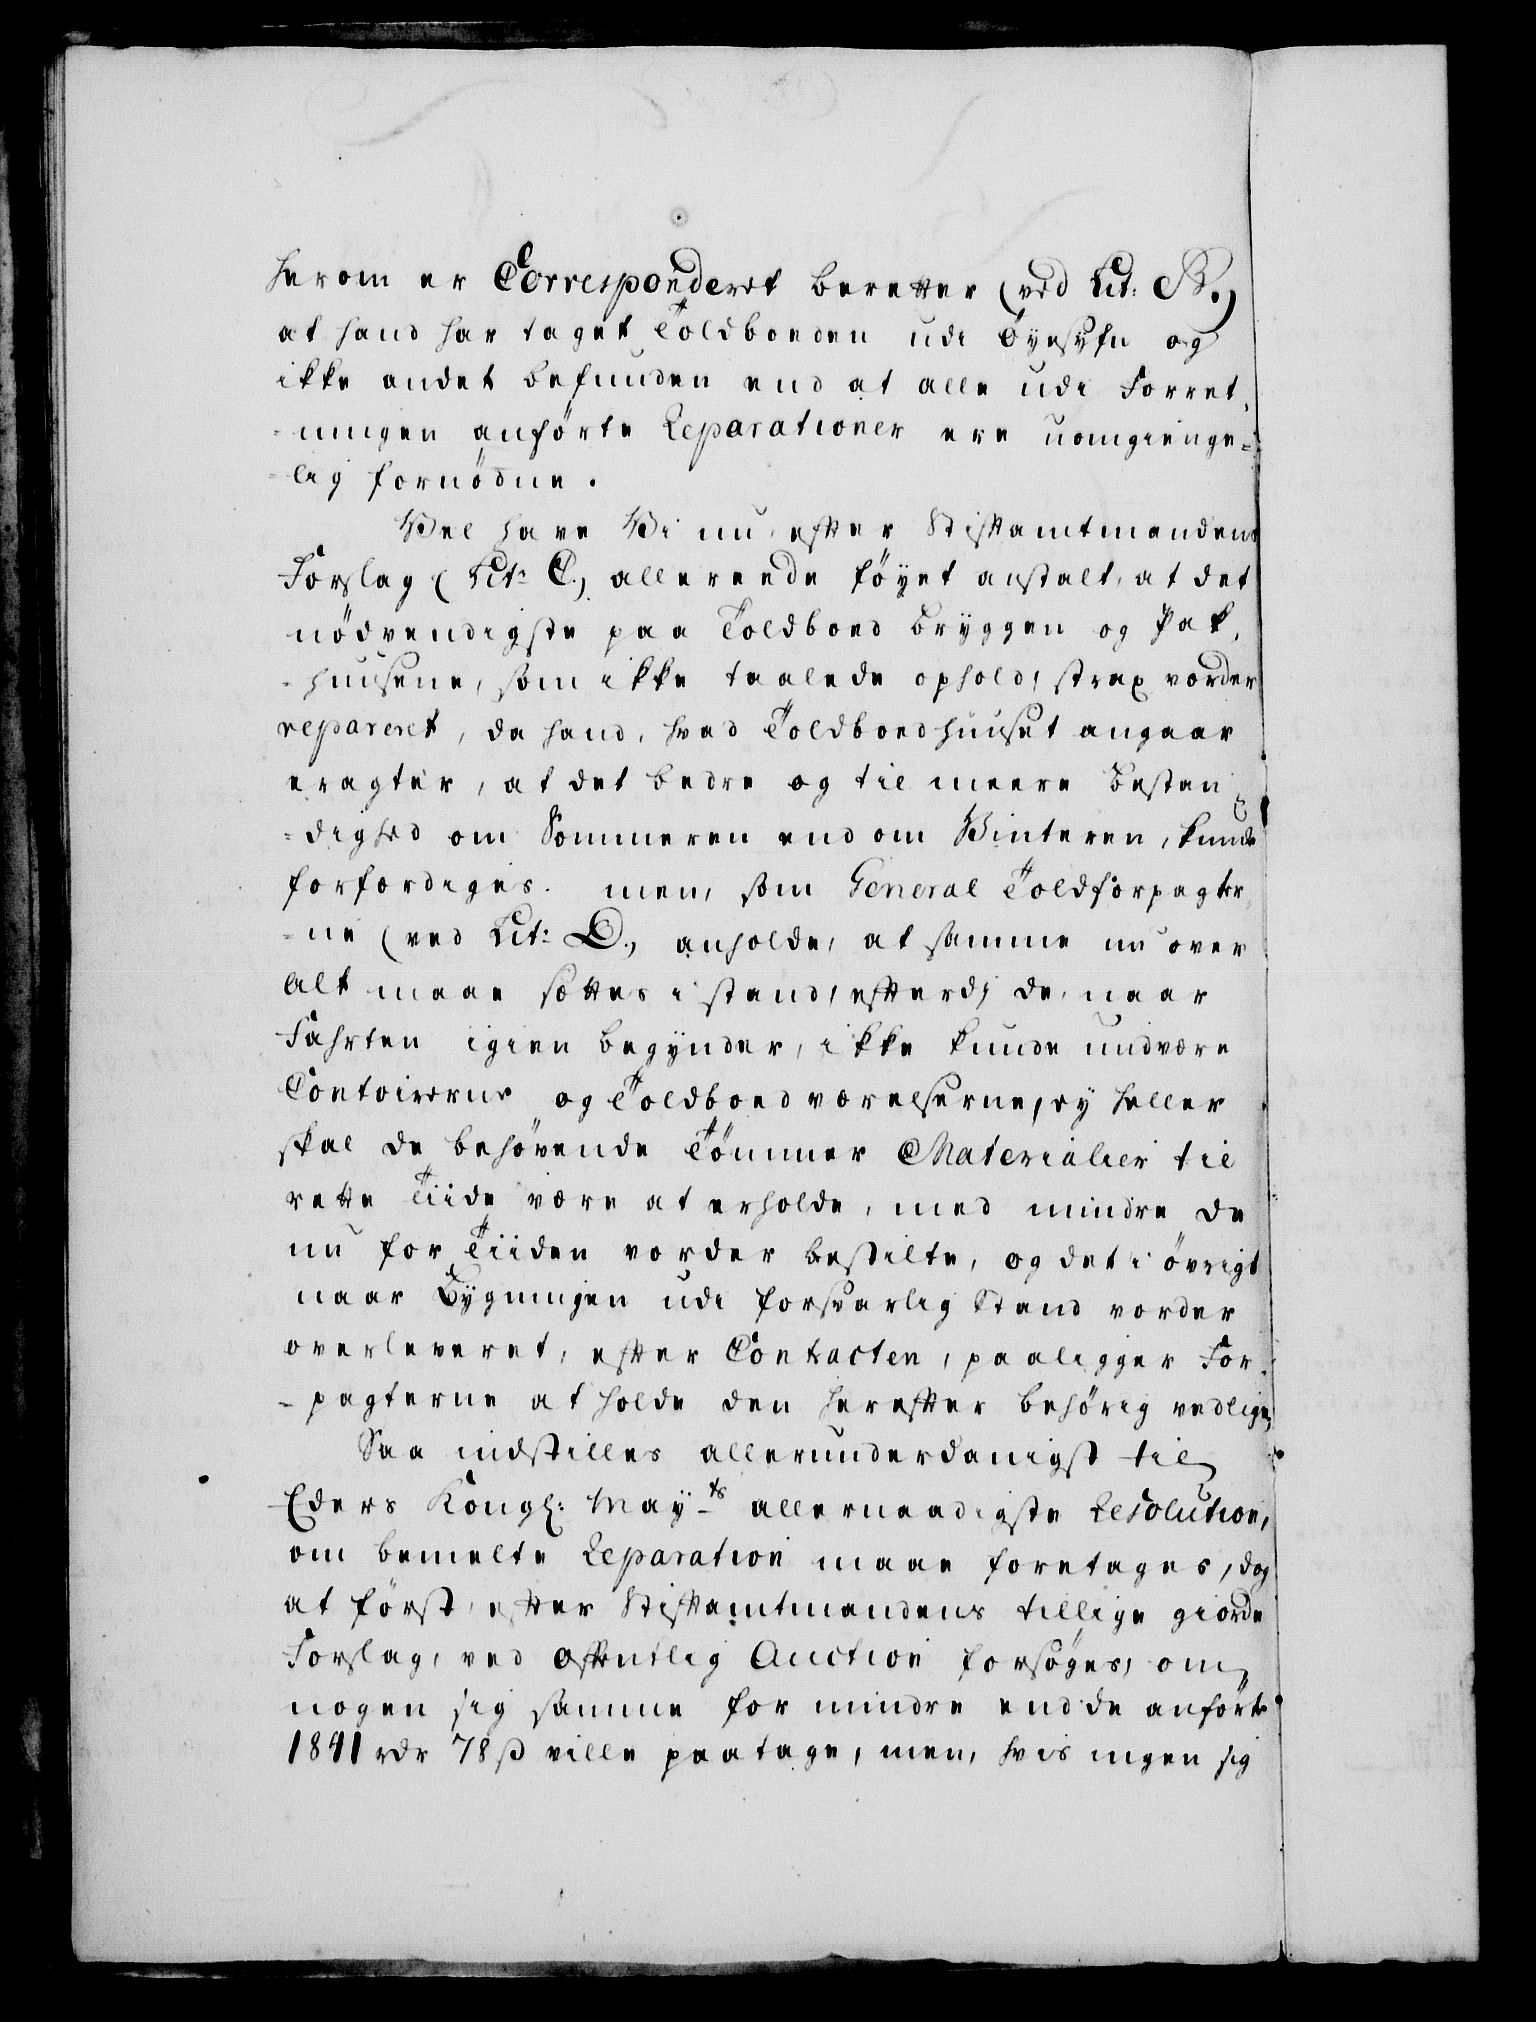 herom er Corresponderet beretter (ved Lit: B.)
at hand har taget Toldboeden udi Øyesyfn og
ikke andet befunden end at alle udi Forret,
-ningen anførte Reparationer ere uomgienge=
-lig fornødne.
Vel have Vi nu, efter Stiftamtmandens
Forslag (Lit: C.) allereede føyet anstalt, at det
nødvendigste paa Toldboed Bryggen og Pak,
-huusene, som ikke taalede ophold, strax vorder
repareret, da hand, hvad Toldboedhuuset angaar
eragter, at det bedre og til meere Bestan
=dighed om Sommeren end om Vinteren, kunde
forfærdiges. men, som General Toldforpagter,
-ne (ved Lit: D.) anholde, at samme nu over
alt maae sættes i stand, efterdj de, naar
Fahrten igien begynder, ikke kunde undvære
Contoirerne og Toldboed værelserne, ey heller
skal de behøvende Tømmer Materialier til
rette Tiide være at erholde, med mindre de
nu for Tiiden vorder bestilte, og det i øvrigt
naar Bygningen udi forsvarlig Stand vorder
overleveret, efter Contracten, paaligger For-
-pagterne at holde den herefter behørig vedlige,
Saa indstilles allerunderdanigst til
Eders Kongl: May-ts allernaadigste Resolution,
om bemelte Reparation maae foretages, dog
at først, efter Stiftamtmandens tillige giorde
Forslag, ved offentlig Auction forsøges, om
nogen sig samme for mindre end de anførte
1841 rdr 78 ß ville paatage, men, hvis ingen sig